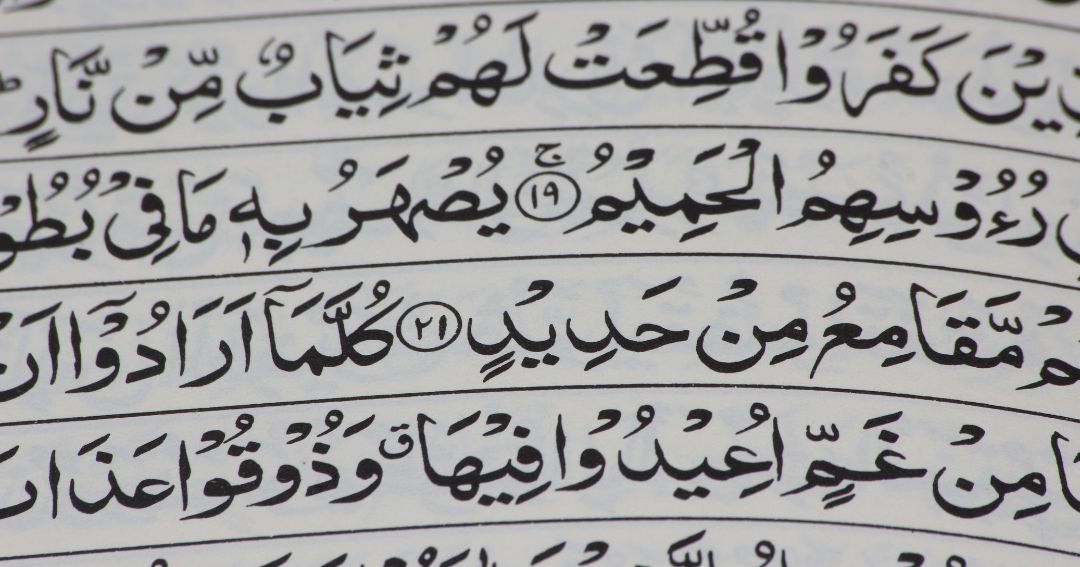 كَفَرُوْا قُطِّعَتْ لَهُمْ ثِيَابٌ مِّنْ نَّارٍ
رُءُوْسِهِمُ الْحَمِيْمُ ۝۱۹ ج يُصْهَرُ بِهٖ مَا فِيْ
مَّقَامِعُ مِنْ حَدِيْدٍ ۝۲۱ كُلَّمَاۤ اَرَادُوْۤا اَنْ
مِنْ غَمٍّ اُعِيْدُوْا فِيْهَا ق وَذُوْقُوْا